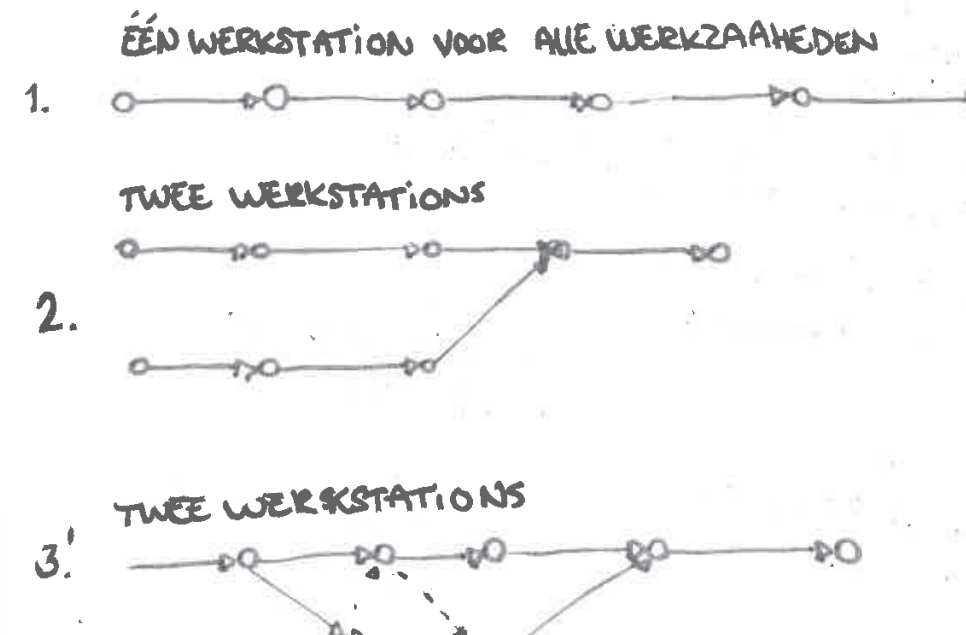 ÉÉN WERKSTATION VOOR ALLE WERKZAAHEDEN
1.
TWEE WERKSTATIONS
2.
TWEE WERSKSTATIONS
3.